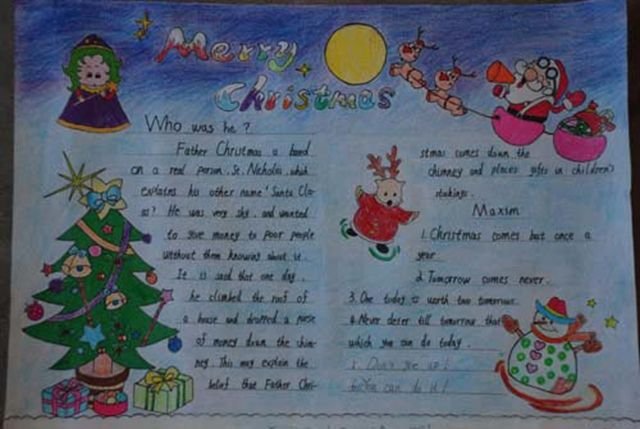 Merry
Christmas
Who was he?
Father Christmas is based
on a real person, St. Nicholas, which
explains his other name 'Santa Cla-
us? He was very shy, and wanted
to give money to poor people
without them knowing about it.
It is said that one day,
he climbed the roof of
a house and dropped a purse
of money down the chim-
ney. This may explain the
belief that Father Chri-
stmas comes down the
chimney and places gifts in children's
stockings.
Maxim
1. Christmas comes but once a
year.
2. Tomorrow comes never.
3. One today is worth two tomorrow.
4. Never defer till tomorrow that
which you can do today.
5. Don't give up!
6. You can do it!